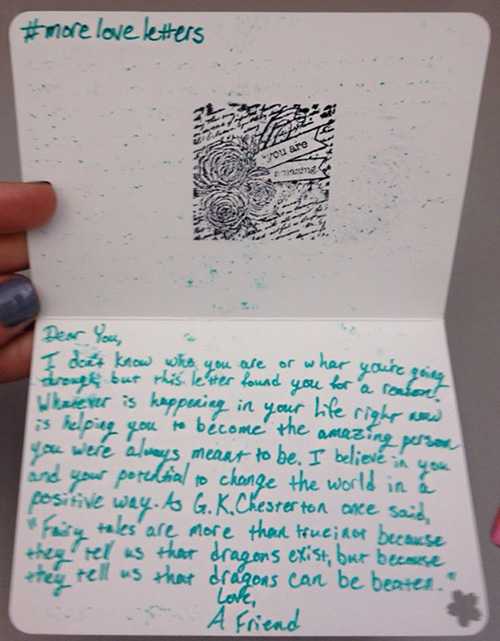 #moreloveletters
you are
amazing
Dear You,
I don't know who you are or what you're going
through but this letter found you for a reason.
Whatever is happening in your life right now
is helping you to become the amazing person
you were always meant to be. I believe in you
and your potential to change the world in a
positive way. As G.K.Chesterton once said,
"Fairy tales are more than true; not because
they tell us that dragons exist, but because
they tell us that dragons can be beaten."
Love,
A Friend